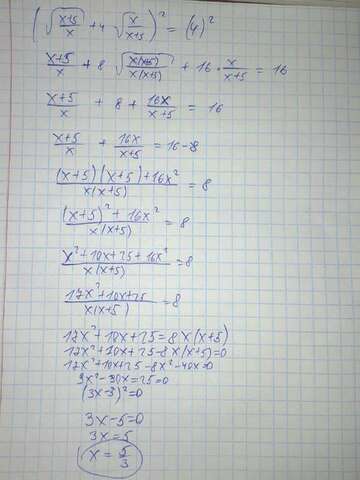 (√((x+5)/x) + 4 √(x/(x+5)))² = (4)²
(x+5)/x + 8 √(x(x+5)/x(x+5)) + 16 · x/(x+5) = 16
(x+5)/x + 8 + 16x/(x+5) = 16
(x+5)/x + 16x/(x+5) = 16-8
((x+5)(x+5)+16x²)/(x(x+5)) = 8
((x+5)²+16x²)/(x(x+5)) = 8
(x²+10x+25+16x²)/(x(x+5)) = 8
(17x²+10x+25)/(x(x+5)) = 8
17x²+10x+25=8x(x+5)
17x²+10x+25-8x(x+5)=0
17x²+10x+25-8x²-40x=0
9x²-30x=25=0
(3x-5)²=0
3x-5=0
3x=5
x = 5/3